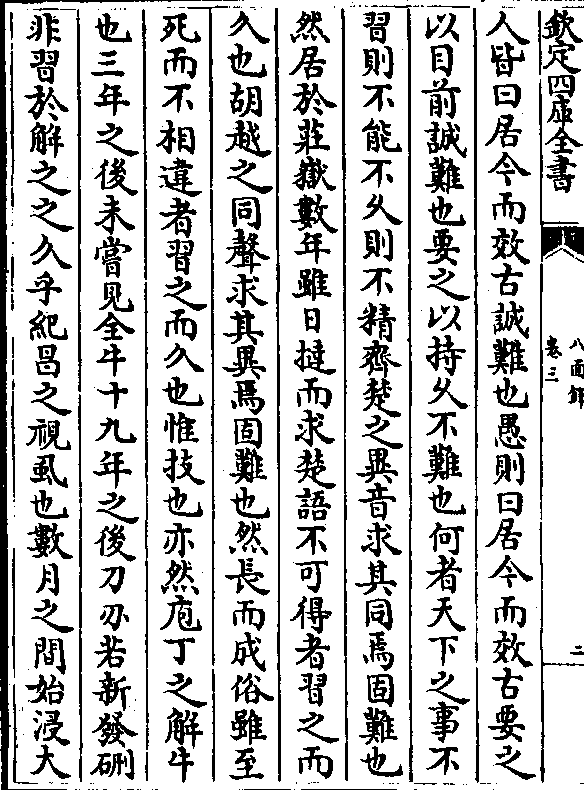 欽定四庫全書
八面鋒
卷三
二
人皆曰居今而效古誠難也愚則曰居今而效古要之
以目前誠難也要之以持久不難也何者天下之事不
習則不能不久則不精齊楚之異音求其同焉固難也
然居於莊嶽數年雖日撻而求楚語不可得者習之而
久也胡越之同聲求其異焉固難也然長而成俗雖至
死而不相違者習之而久也惟技也亦然庖丁之解牛
也三年之後未嘗見全牛十九年之後刀刃若新發硎
非習於解之之久乎紀昌之視虱也數月之間始浸大